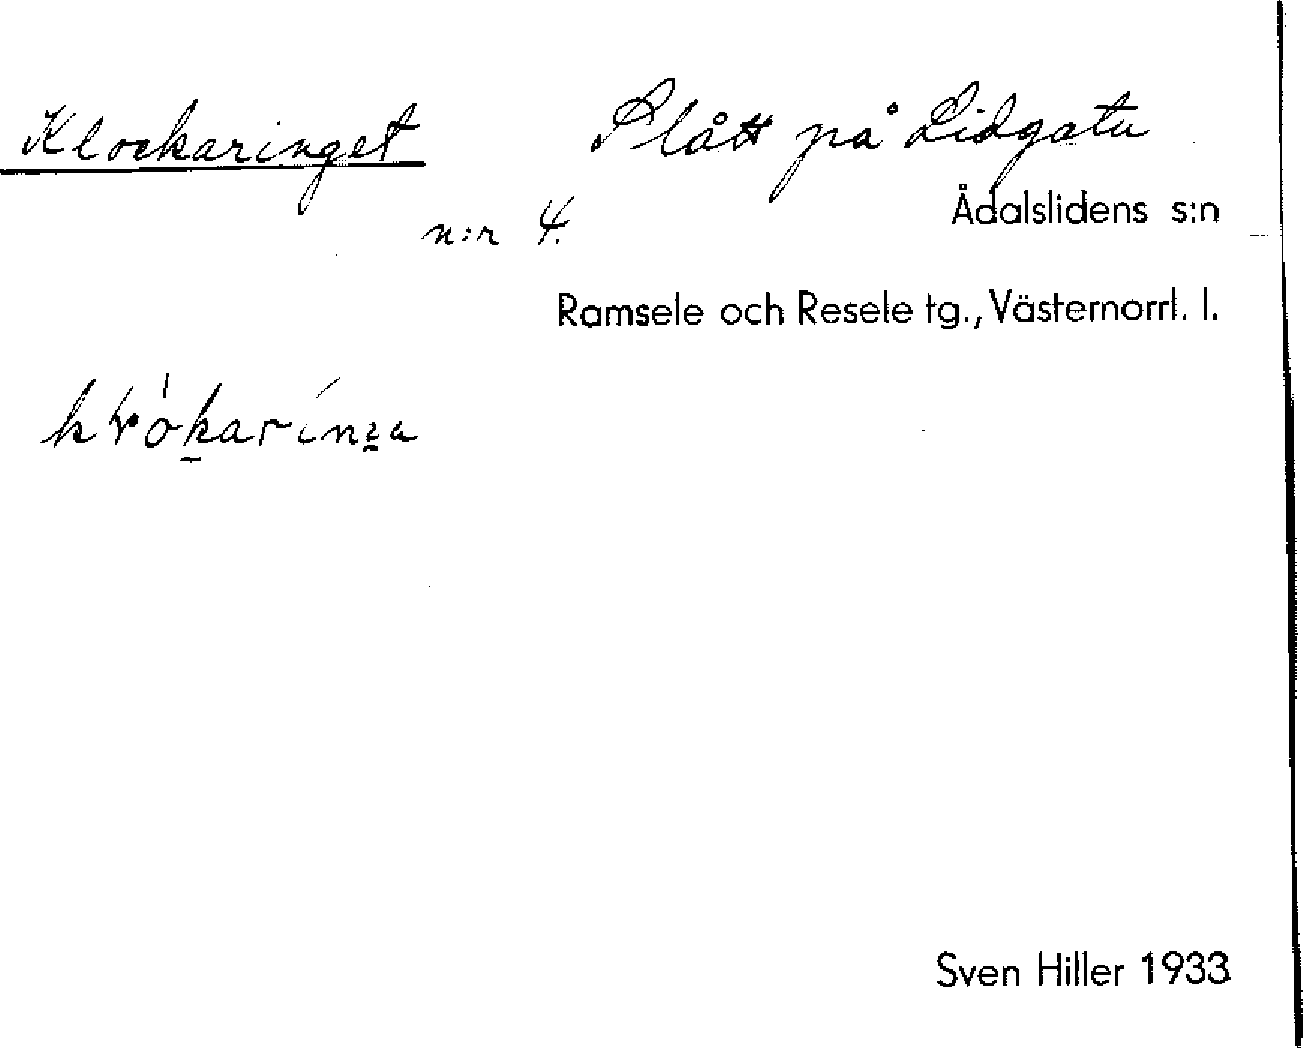 Klockaringet Slått på Lidgatu
n:r 4. Ådalslidens s:n
Ramsele och Resele tg., Västernorrl. l.
Sven Hiller 1933